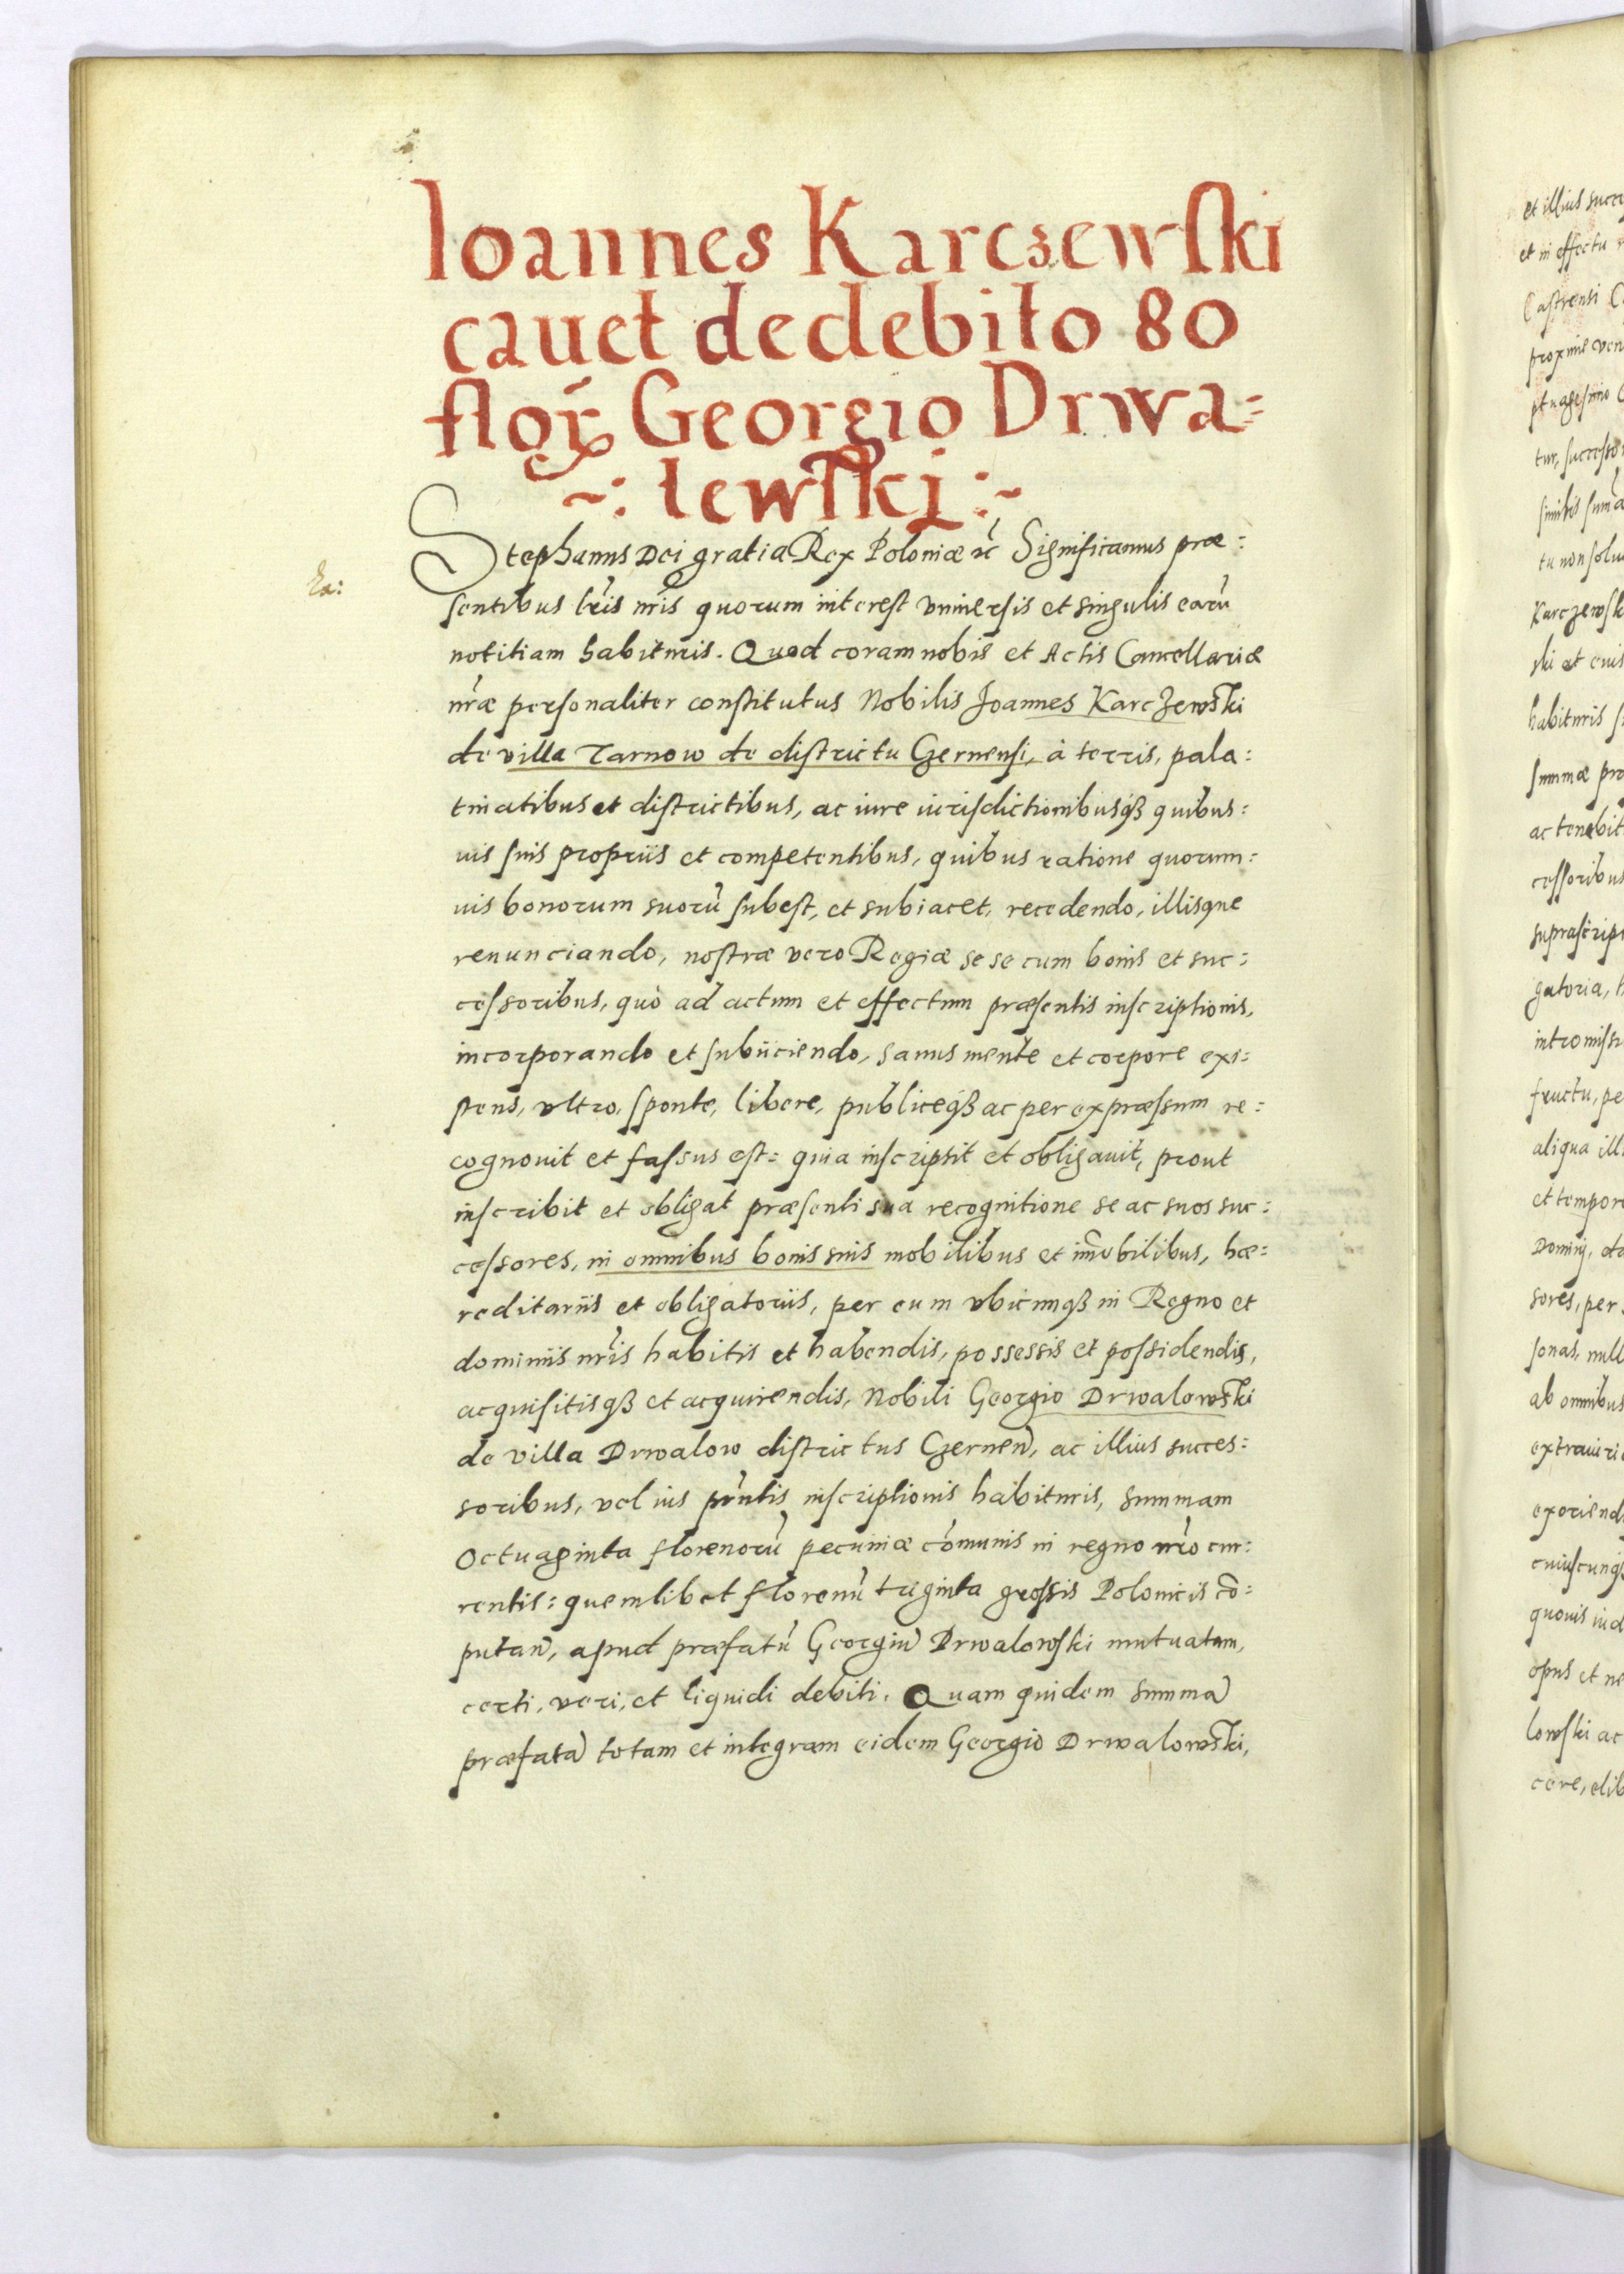 Ioannes Karczewſki
cauet de debito 80
floꝝ Georgio Drwa=
~: lewſki :~
Stephanus Dei gratia Rex Poloniæ ꝛc̃ Significamus præ:
ſentibus lr̃is nr̃is quorum intereſt vniuersis et singulis earũ
ha:
notitiam habituris. Quod coram nobis et Actis Cancellariæ
nr̃æ perſonaliter conſtitutus Nobilis Joannes Karczewſki
de villa Tarnow de diſtrictu Czernenſi, à terris, pala:
tinatibus et diſtrictibus, ac iure iurisdictionibusqꝫ quibus:
uis ſuis propriis et competentibus, quibus ratione quorum:
uis bonorum suorũ ſubeſt, et subiacet, recedendo, illisque
renunciando, noſtræ vero Regiæ se se cum bonis et suc:
ceſsoribus, quò ad actum et effectum præſentis inſcriptionis,
incorporando et ſubiiciendo, sanus mente et corpore exi:
ſtens, vltro, ſponte, libere, publiceqꝫ ac per expræſsum re:
cognouit et faſsus eſt: quia inſcripſit et obligauit, prout
inſcribit et obligat præſenti sua recognitione se ac suos suc:
ceſsores, in omnibus bonis suis mobilibus et im̃obilibus, hæ:
reditariis et obligatoriis, per eum vbicunqꝫ in Regno et
dominiis nr̃is habitis et habendis, possessis et poſsidendis,
acquiſitisqꝫ et acquirendis, Nobili Georgio Drwalowſki
de villa Drwalow diſtrictus Czernen̄, ac illius succes:
soribus, vel ius pñtis inſcriptionis habituris, summam
Octuaginta florenorũ pecuniæ com̃unis in regno nr̃o cur:
rentis: quemlibet florenũ triginta groſsis Polonicis cõ:
putan̄, apud præfatũ Georgiũ Drwalowſki mutuatam,
certi, veri, et liquidi debiti. Quam quidem summã
præfatã totam et integram eidem Georgio Drwalowſki,
et illius succ
et in effectu
Caſtrenſi
proxime ven
ptuageſimo
tur, ſucceſso
ſimilis ſum̃a
tu non ſolu
Karczewſk
ſki et eius
habituris
ſummæ pro
ac tenebit
ceſſoribus
supraſcrip
gatoria,
intromiſsi
fructu, pe
aliqua ill
et tempor
Domini, da
sores, per
ſonas, null
ab omnibus
extraiuri
exoriend
cuiuſcunqꝫ
quouis iud
opus et ne
lowſki ac
cere, elib